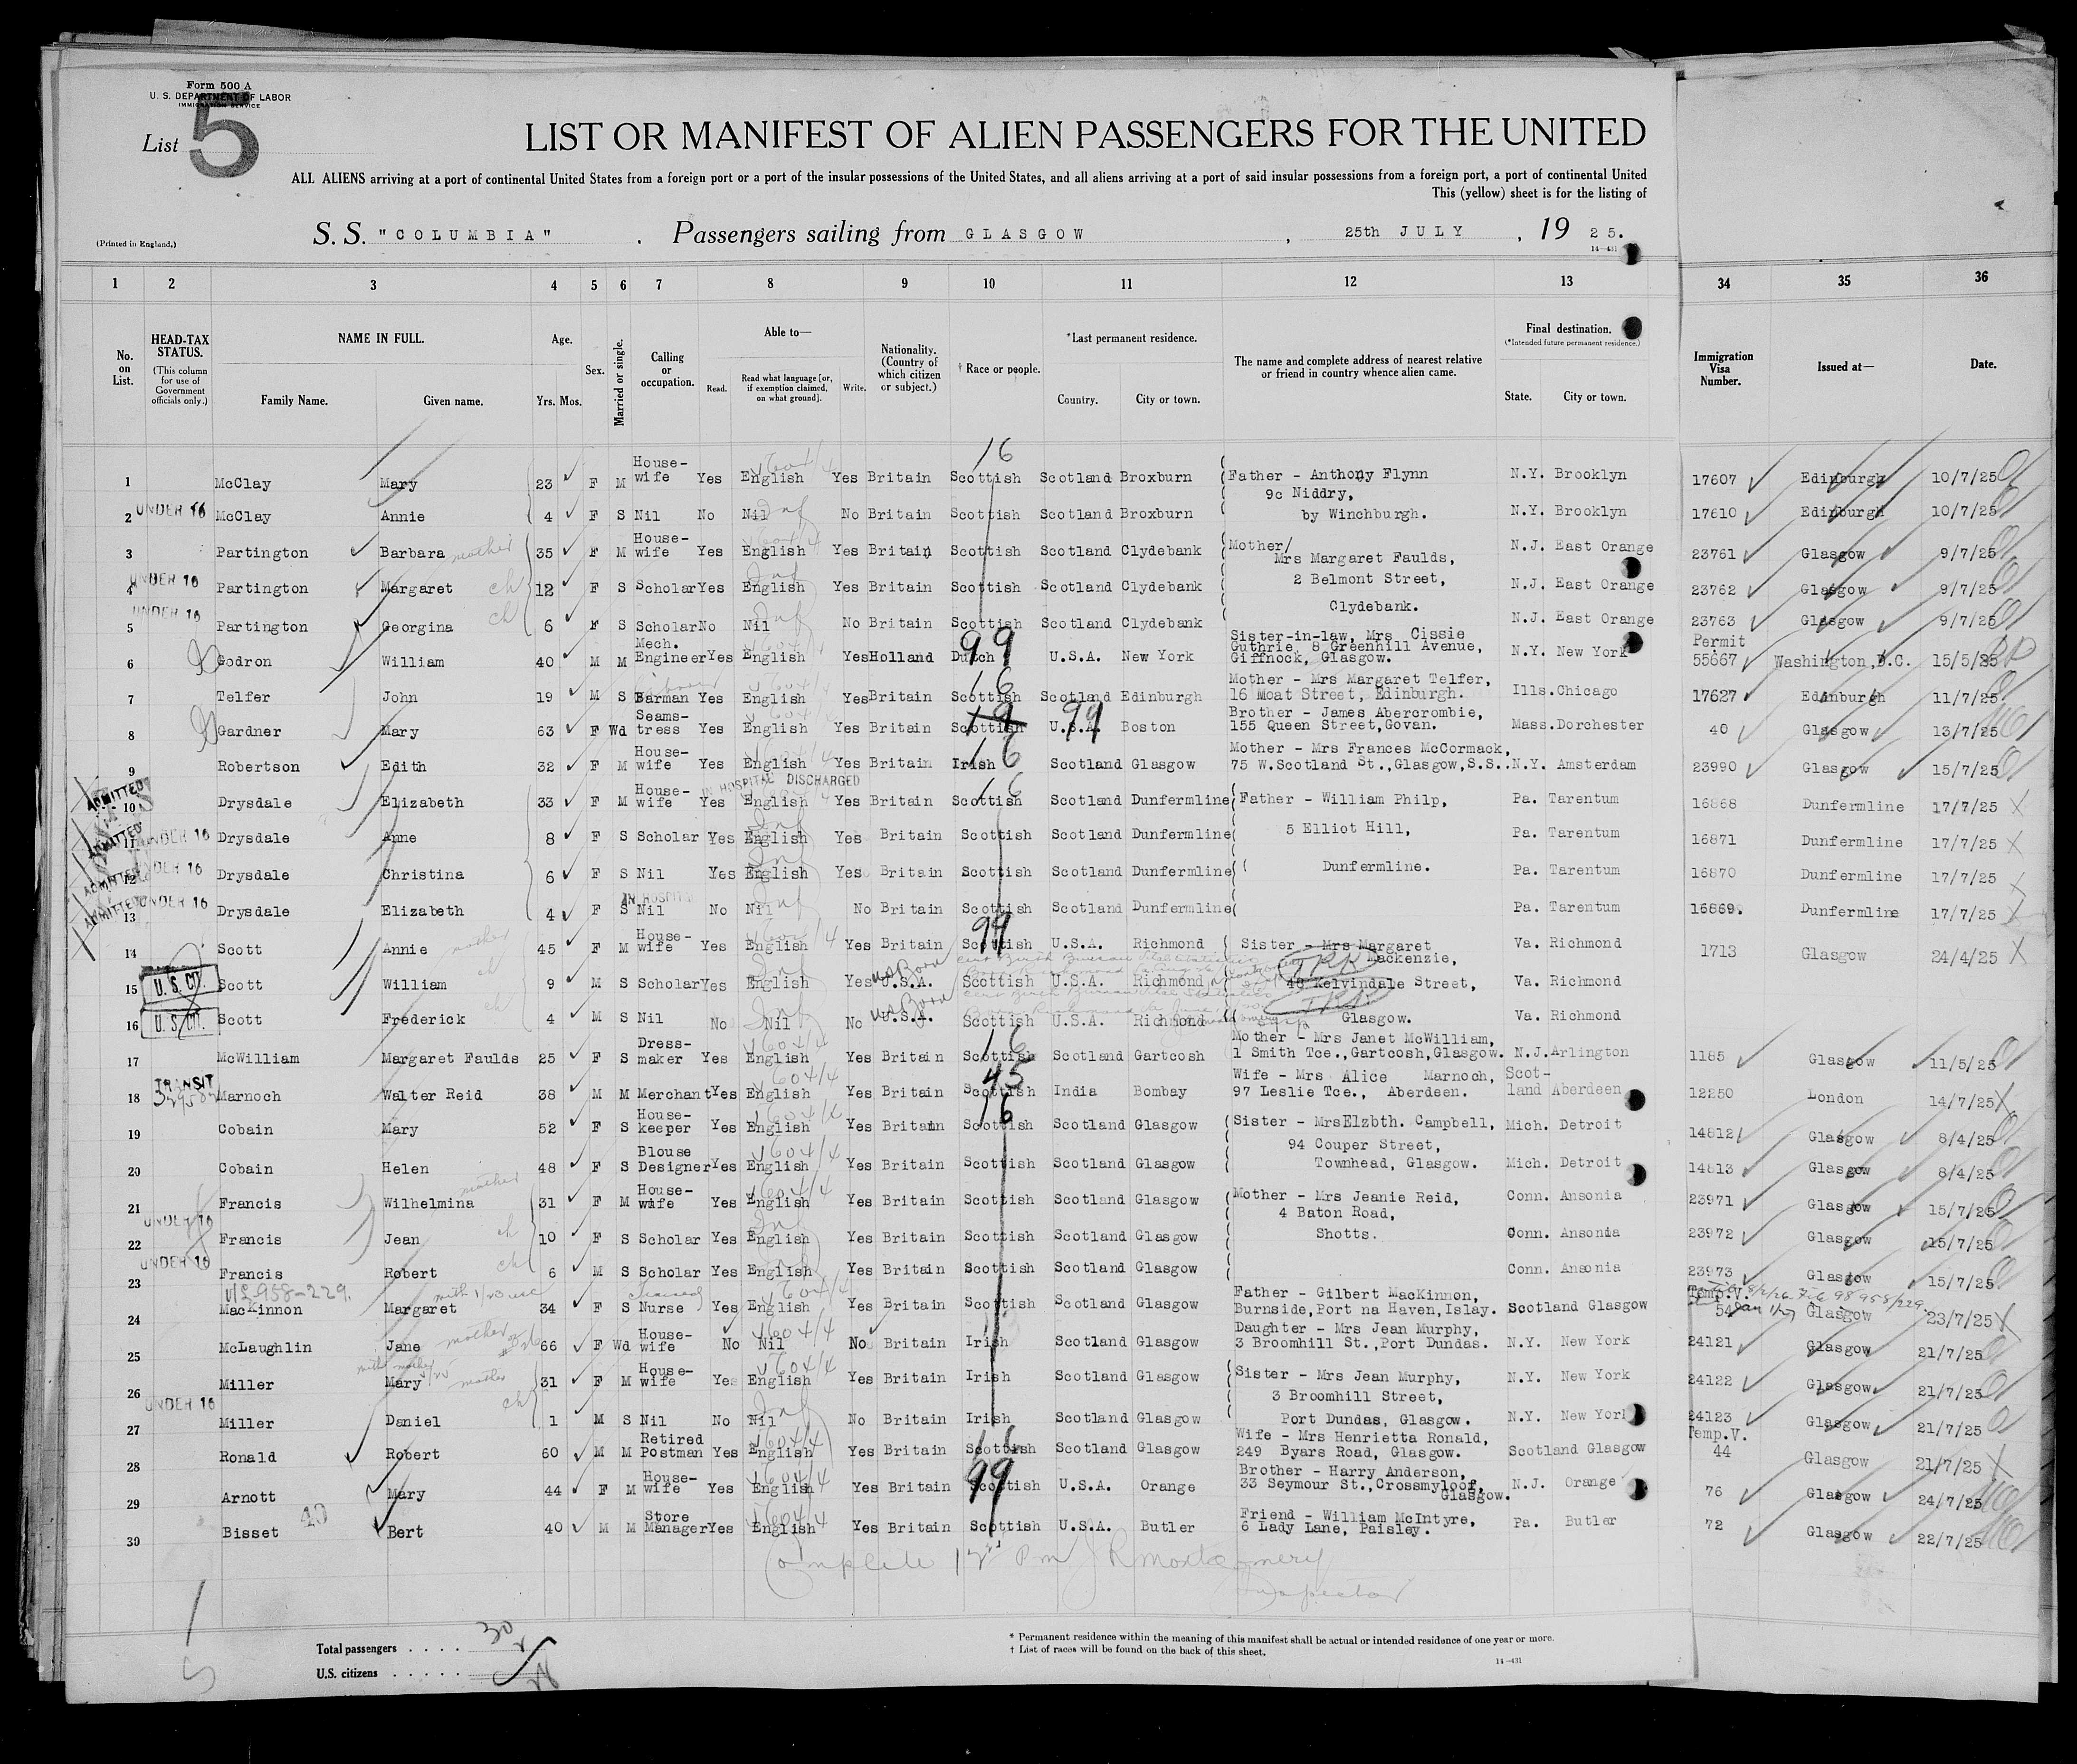 Form 500 A
U. S. DEPARTMENT OF LABOR
IMMIGRATION SERVICE
List 5
LIST OR MANIFEST OF ALIEN PASSENGERS FOR THE UNITED
ALL ALIENS arriving at a port of continental United States from a foreign port or a port of the insular possessions of the United States, and all aliens arriving at a port of said insular possessions from a foreign port, a port of continental United
This (yellow) sheet is for the listing of
(Printed in England.)
S. S. "COLUMBIA" . Passengers sailing from GLASGOW , 25th JULY , 19 25.
14—431
1 2 3 4 5 6 7 8 9 10 11 12 13 34 35 36
No. on List.
HEAD-TAX STATUS. (This column for use of Government officials only.)
NAME IN FULL.
Family Name. Given name.
Age.
Yrs. Mos.
Sex.
Married or single.
Calling or occupation.
Able to—
Read. Read what language [or, if exemption claimed, on what ground]. Write.
Nationality. (Country of which citizen or subject.)
† Race or people.
*Last permanent residence.
Country. City or town.
The name and complete address of nearest relative or friend in country whence alien came.
Final destination.
(*Intended future permanent residence.)
State. City or town.
Immigration Visa Number.
Issued at—
Date.
16
1 McClay Mary 23 F M House-wife Yes English Yes Britain Scottish Scotland Broxburn Father - Anthony Flynn N.Y. Brooklyn 17607 Edinburgh 10/7/25
9c Niddry,
2 UNDER 16 McClay Annie 4 F S Nil No Nil No Britain Scottish Scotland Broxburn by Winchburgh. N.Y. Brooklyn 17610 Edinburgh 10/7/25
3 Partington Barbara mother 35 F M House-wife Yes English Yes Britain Scottish Scotland Clydebank Mother/ N.J. East Orange 23761 Glasgow 9/7/25
Mrs Margaret Faulds,
4 UNDER 16 Partington Margaret ch 12 F S Scholar Yes English Yes Britain Scottish Scotland Clydebank 2 Belmont Street, N.J. East Orange 23762 Glasgow 9/7/25
Clydebank.
5 UNDER 16 Partington Georgina ch 6 F S Scholar No Nil No Britain Scottish Scotland Clydebank N.J. East Orange 23763 Glasgow 9/7/25
6 Godron William 40 M M Mech. Engineer Yes English Yes Holland Dutch 99 U.S.A. New York Sister-in-law, Mrs Cissie Guthrie, 8 Greenhill Avenue, Giffnock, Glasgow. N.Y. New York Permit 55667 Washington, D.C. 15/5/25
7 Telfer John 19 M S Barman Yes English Yes Britain Scottish 16 Scotland Edinburgh Mother - Mrs Margaret Telfer, 16 Moat Street, Edinburgh. Ills. Chicago 17627 Edinburgh 11/7/25
8 Gardner Mary 63 F Wd Seams-tress Yes English Yes Britain Scottish U.S.A. 99 Boston Brother - James Abercrombie, 155 Queen Street, Govan. Mass. Dorchester 40 Glasgow 13/7/25
9 Robertson Edith 32 F M House-wife Yes English Yes Britain Irish 16 Scotland Glasgow Mother - Mrs Frances McCormack, 75 W.Scotland St., Glasgow, S.S.. N.Y. Amsterdam 23990 Glasgow 15/7/25
IN HOSPITAL DISCHARGED
10 ADMITTED Drysdale Elizabeth 33 F M House-wife Yes English Yes Britain Scottish 16 Scotland Dunfermline Father - William Philp, Pa. Tarentum 16868 Dunfermline 17/7/25
11 ADMITTED UNDER 16 Drysdale Anne 8 F S Scholar Yes English Yes Britain Scottish Scotland Dunfermline 5 Elliot Hill, Pa. Tarentum 16871 Dunfermline 17/7/25
12 ADMITTED UNDER 16 Drysdale Christina 6 F S Nil Yes English Yes Britain Scottish Scotland Dunfermline Dunfermline. Pa. Tarentum 16870 Dunfermline 17/7/25
IN HOSPITAL
13 ADMITTED UNDER 16 Drysdale Elizabeth 4 F S Nil No Nil No Britain Scottish Scotland Dunfermline Pa. Tarentum 16869. Dunfermline 17/7/25
14 Scott Annie mother 45 F M House-wife Yes English Yes Britain Scottish 99 U.S.A. Richmond Sister - Mrs Margaret Mackenzie, Va. Richmond 1713 Glasgow 24/4/25
15 U.S. CIT. Scott William ch 9 M S Scholar Yes English Yes US Born U.S.A. Scottish U.S.A. Richmond 48 Kelvindale Street, Va. Richmond
16 U.S. CIT. Scott Frederick ch 4 M S Nil No Nil No US Born U.S.A. Scottish U.S.A. Richmond Glasgow. Va. Richmond
17 McWilliam Margaret Faulds 25 F S Dress-maker Yes English Yes Britain Scottish 16 Scotland Gartcosh Mother - Mrs Janet McWilliam, 1 Smith Tce., Gartcosh, Glasgow. N.J. Arlington 1185 Glasgow 11/5/25
18 TRANSIT Marnoch Walter Reid 38 M M Merchant Yes English Yes Britain Scottish 45 India Bombay Wife - Mrs Alice Marnoch, 97 Leslie Tce., Aberdeen. Scot-land Aberdeen 12250 London 14/7/25
19 Cobain Mary 52 F S House-keeper Yes English Yes Britain Scottish 16 Scotland Glasgow Sister - Mrs Elzbth. Campbell, Mich. Detroit 14812 Glasgow 8/4/25
94 Couper Street,
20 Cobain Helen 48 F S Blouse Designer Yes English Yes Britain Scottish Scotland Glasgow Townhead, Glasgow. Mich. Detroit 14813 Glasgow 8/4/25
21 Francis Wilhelmina mother 31 F M House-wife Yes English Yes Britain Scottish Scotland Glasgow Mother - Mrs Jeanie Reid, Conn. Ansonia 23971 Glasgow 15/7/25
4 Baton Road,
22 UNDER 16 Francis Jean ch 10 F S Scholar Yes English Yes Britain Scottish Scotland Glasgow Shotts. Conn. Ansonia 23972 Glasgow 15/7/25
23 UNDER 16 Francis Robert ch 6 M S Scholar Yes English Yes Britain Scottish Scotland Glasgow Conn. Ansonia 23973 Glasgow 15/7/25
24 MacKinnon Margaret 34 F S Nurse Yes English Yes Britain Scottish Scotland Glasgow Father - Gilbert MacKinnon, Burnside, Port na Haven, Islay. Scotland Glasgow Temp.V. 54 Glasgow 23/7/25
25 McLaughlin Jane mother 66 F Wd House-wife No Nil No Britain Irish Scotland Glasgow Daughter - Mrs Jean Murphy, 3 Broomhill St., Port Dundas. N.Y. New York 24121 Glasgow 21/7/25
26 Miller Mary mother 31 F M House-wife Yes English Yes Britain Irish Scotland Glasgow Sister - Mrs Jean Murphy, N.Y. New York 24122 Glasgow 21/7/25
3 Broomhill Street,
27 UNDER 16 Miller Daniel ch 1 M S Nil No Nil No Britain Irish Scotland Glasgow Port Dundas, Glasgow. N.Y. New York 24123 Glasgow 21/7/25
28 Ronald Robert 60 M M Retired Postman Yes English Yes Britain Scottish Scotland Glasgow Wife - Mrs Henrietta Ronald, 249 Byars Road, Glasgow. Scotland Glasgow Temp.V. 44 Glasgow 21/7/25
29 Arnott Mary 44 F M House-wife Yes English Yes Britain Scottish 99 U.S.A. Orange Brother - Harry Anderson, 33 Seymour St., Crossmyloof, Glasgow. N.J. Orange 76 Glasgow 24/7/25
30 Bisset Bert 40 M M Store Manager Yes English Yes Britain Scottish U.S.A. Butler Friend - William McIntyre, 6 Lady Lane, Paisley. Pa. Butler 72 Glasgow 22/7/25
Complete
J R Montgomery
Inspector
Total passengers . . . . 30
U.S. citizens . . . . .
* Permanent residence within the meaning of this manifest shall be actual or intended residence of one year or more.
† List of races will be found on the back of this sheet.
14—431